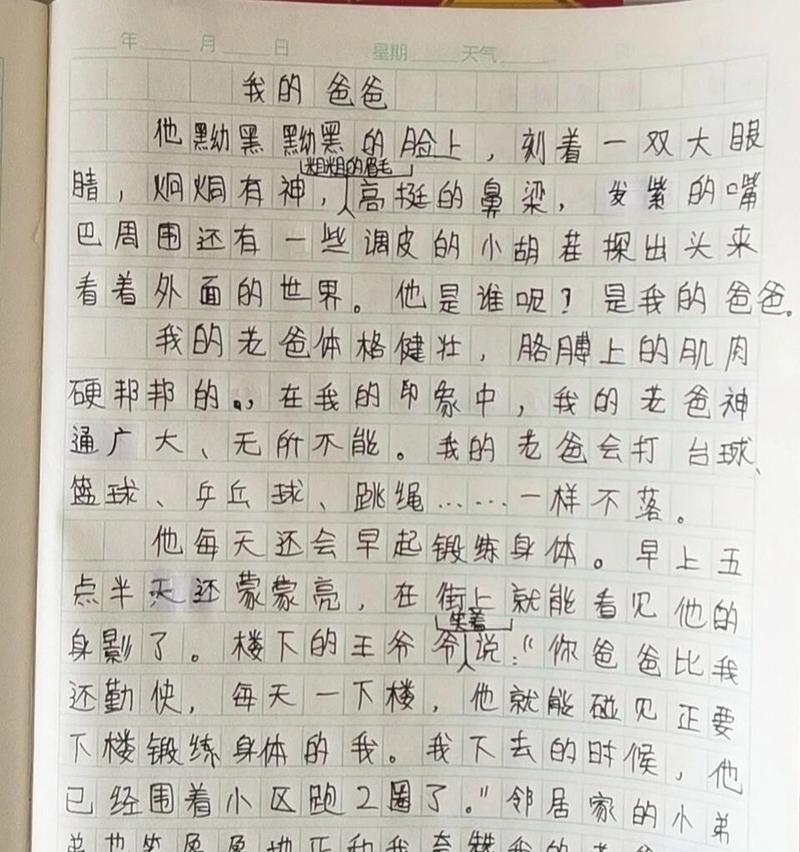 年 月 日 星期 天气
我的爸爸
他黝黑黝黑的脸上，刻着一双大眼
粗粗的眉毛
睛，炯炯有神，高挺的鼻梁，发紫的嘴
巴周围还有一些调皮的小胡茬探出头来
看着外面的世界。他是谁呢？是我的爸爸。
我的老爸体格健壮，胳膊上的肌肉
硬邦邦的，在我的印象中，我的老爸神
通广大、无所不能。我的老爸会打台球、
篮球、乒乓球、跳绳……一样不落。
他每天还会早起锻练身体。早上五
点半天还蒙蒙亮，在街上就能看见他的
笑着
身影了。楼下的王爷爷说：“你爸爸比我
还勤快，每天一下楼，他就能碰见正要
下楼锻练身体的我。我下去的时候，他
已经围着小区跑2圈了。”邻居家的小弟